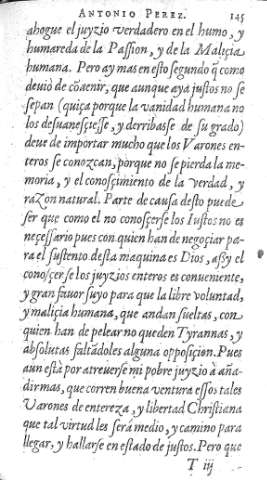 ANTONIO PEREZ. 145
ahogue el juyzio verdadero en el humo, y
humareda de la Passion, y de la Maliçia
humana. Pero ay mas en esto segundo q̃ como
deuiò de cõuenir, que aunque aya justos no se
sepan (quiça porque la vanidad humana no
los desuanesçiesse, y derribasse de su grado)
deue de importar mucho que los Varones en-
teros se conozcan, porque no se pierda la me-
moria, y el conosçimiento de la verdad, y
razon natural. Parte de causa desto puede
ser que como el no conosçerse los Iustos no es
neçessario pues con quien han de negoçiar pa-
ra el sustento desta maquina es Dios, assy el
conosçerse los juyzios enteros es conueniente,
y gran fauor suyo para que la libre voluntad,
y maliçia humana, que andan sueltas, con
quien han de pelear no queden Tyrannas, y
absolutas faltãdoles alguna opposiçion. Pues
aun està por atreuerse mi pobre juyzio à aña-
dirmas, que corren buena ventura essos tales
Varones de entereza, y libertad Christiana
que tal virtud les serà medio, y camino para
llegar, y hallarse en estado de justos. Pero que
T iij